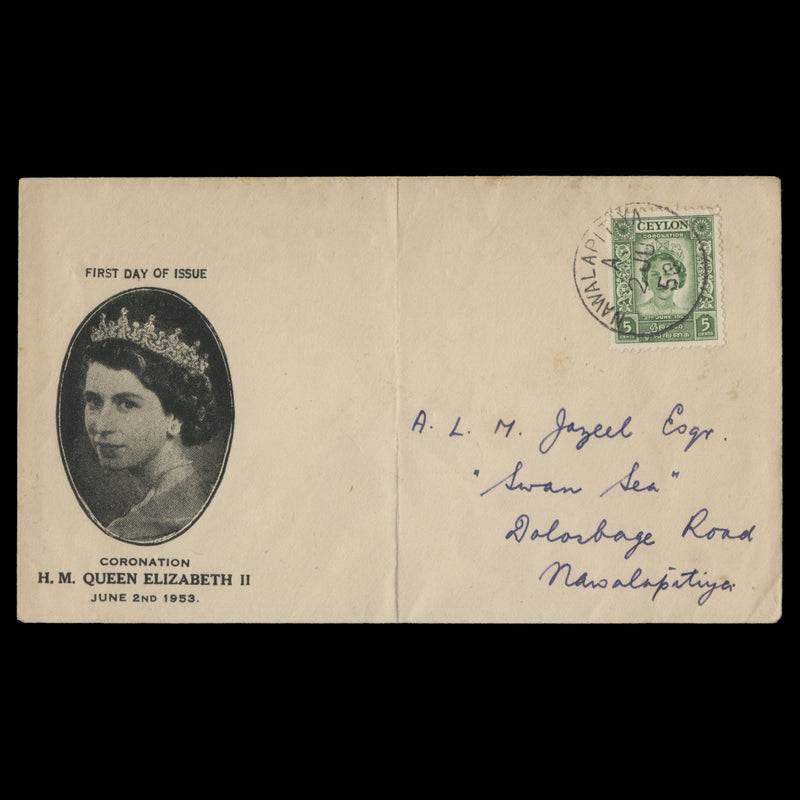 FIRST DAY OF ISSUE
CORONATION
H. M. QUEEN ELIZABETH II
JUNE 2ND 1953.
NAWALAPITIYA
A
2 JU
CEYLON
CORONATION
2ND JUNE
5 CENTS
5 CENTS
ලංකා
இலங்கை
A. L. M. Jazeel Esqr.
"Swan Sea"
Dolosbage Road
Nawalapitiya